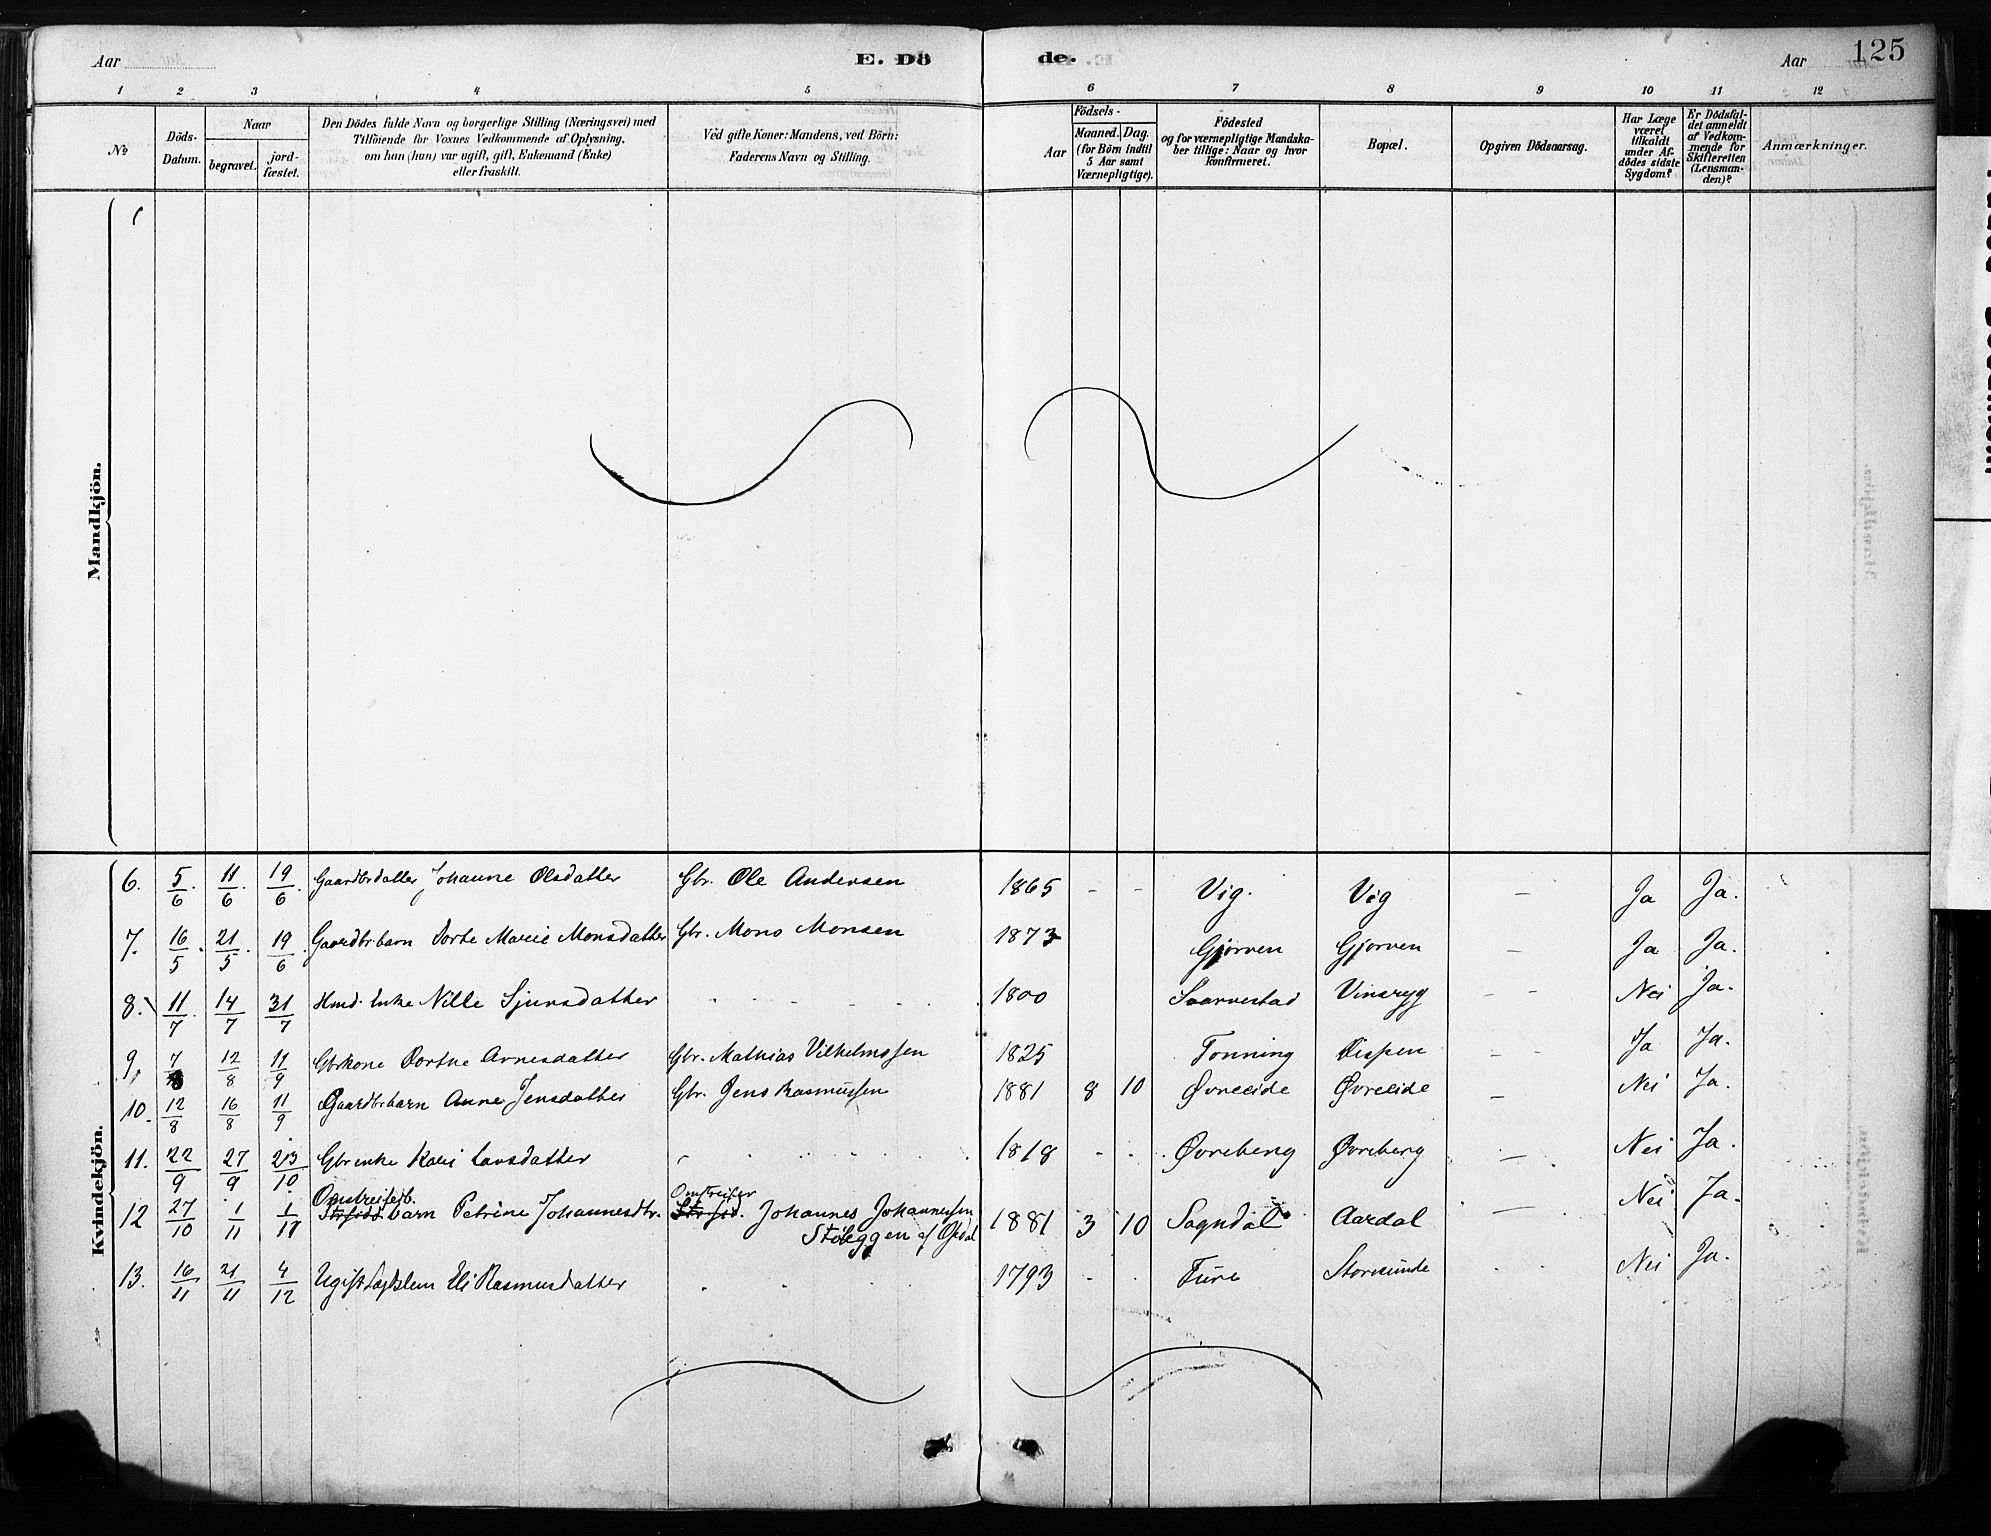 Aar
E. Dö
de.
Aar
125
1 2 3 4 5 6 7 8 9 10 11 12
№
Döds-
Datum.
Naar
begravet.
jord-
fæstet.
Den Dödes fulde Navn og borgerlige Stilling (Næringsvei) med
Tilföiende for Voxnes Vedkommende af Oplysning,
om han (hun) var ugift, gift, Enkemand (Enke)
eller fraskilt.
Ved gifte Koner: Mandens, ved Börn:
Faderens Navn og Stilling.
Aar
Födsels-
Maaned. Dag.
(for Börn indtil
5 Aar samt
Værnepligtige).
Födested
og for værnepligtige Mandska-
ber tillige: Naar og hvor
konfirmeret.
Bopæl.
Opgiven Dödsaarsag.
Har Læge
været
tilkaldt
under Af-
dödes sidste
Sygdom?
Er Dödsfal-
det anmeldt
af Vedkom-
mende for
Skifteretten
(Lensman-
den)?
Anmærkninger.
Mandkjön.
Kvindekjön.
6. 5/6. 11/6. 19/6. Gaardbrdatter Johanne Olsdatter Gbr. Ole Andersen 1865 - - Vig. Vig - Ja Ja.
7. 16/5. 21/5. 19/6. Gaardbrbarn Dorte Marie Monsdatter Gbr. Mons Monsen 1873 Gjørven Gjørven - Ja Ja.
8. 11/7 14/7 31/7 Hmd. Enke Nille Sjursdatter 1800 Saarvestad Vinsryg - - Nei Ja.
9. 7/8 12/8 11/9 Gbrkone Dorthe Arnesdatter Gbr. Mathias Vilhelmssen 1825 Tonning Eispen - - Ja Ja.
10. 12/8 16/8 11/9 Gaardbrbarn Anne Jensdatter Gbr. Jens Rasmussen 1881 8 10 Øvreeide Øvreeide - Nei Ja.
11. 22/9 27/9 23/10 Gbrenke Kari Larsdatter 1818 - - Øvreberg Øvreberg - Nei Ja.
Omstreiferb. Omstreifer
12 27/10 1/11 1/11 Strsidd barn Petrine Johannesdtr. Strsid. Johannes Johannessen 1881 3 10 Sogndal Aardal - Nei Ja.
Støleggen af
13. 16/11 21/11 4/12 Ugift Lægdslem Eli Rasmusdatter 1793 - - Fure Storesunde Nei Ja.